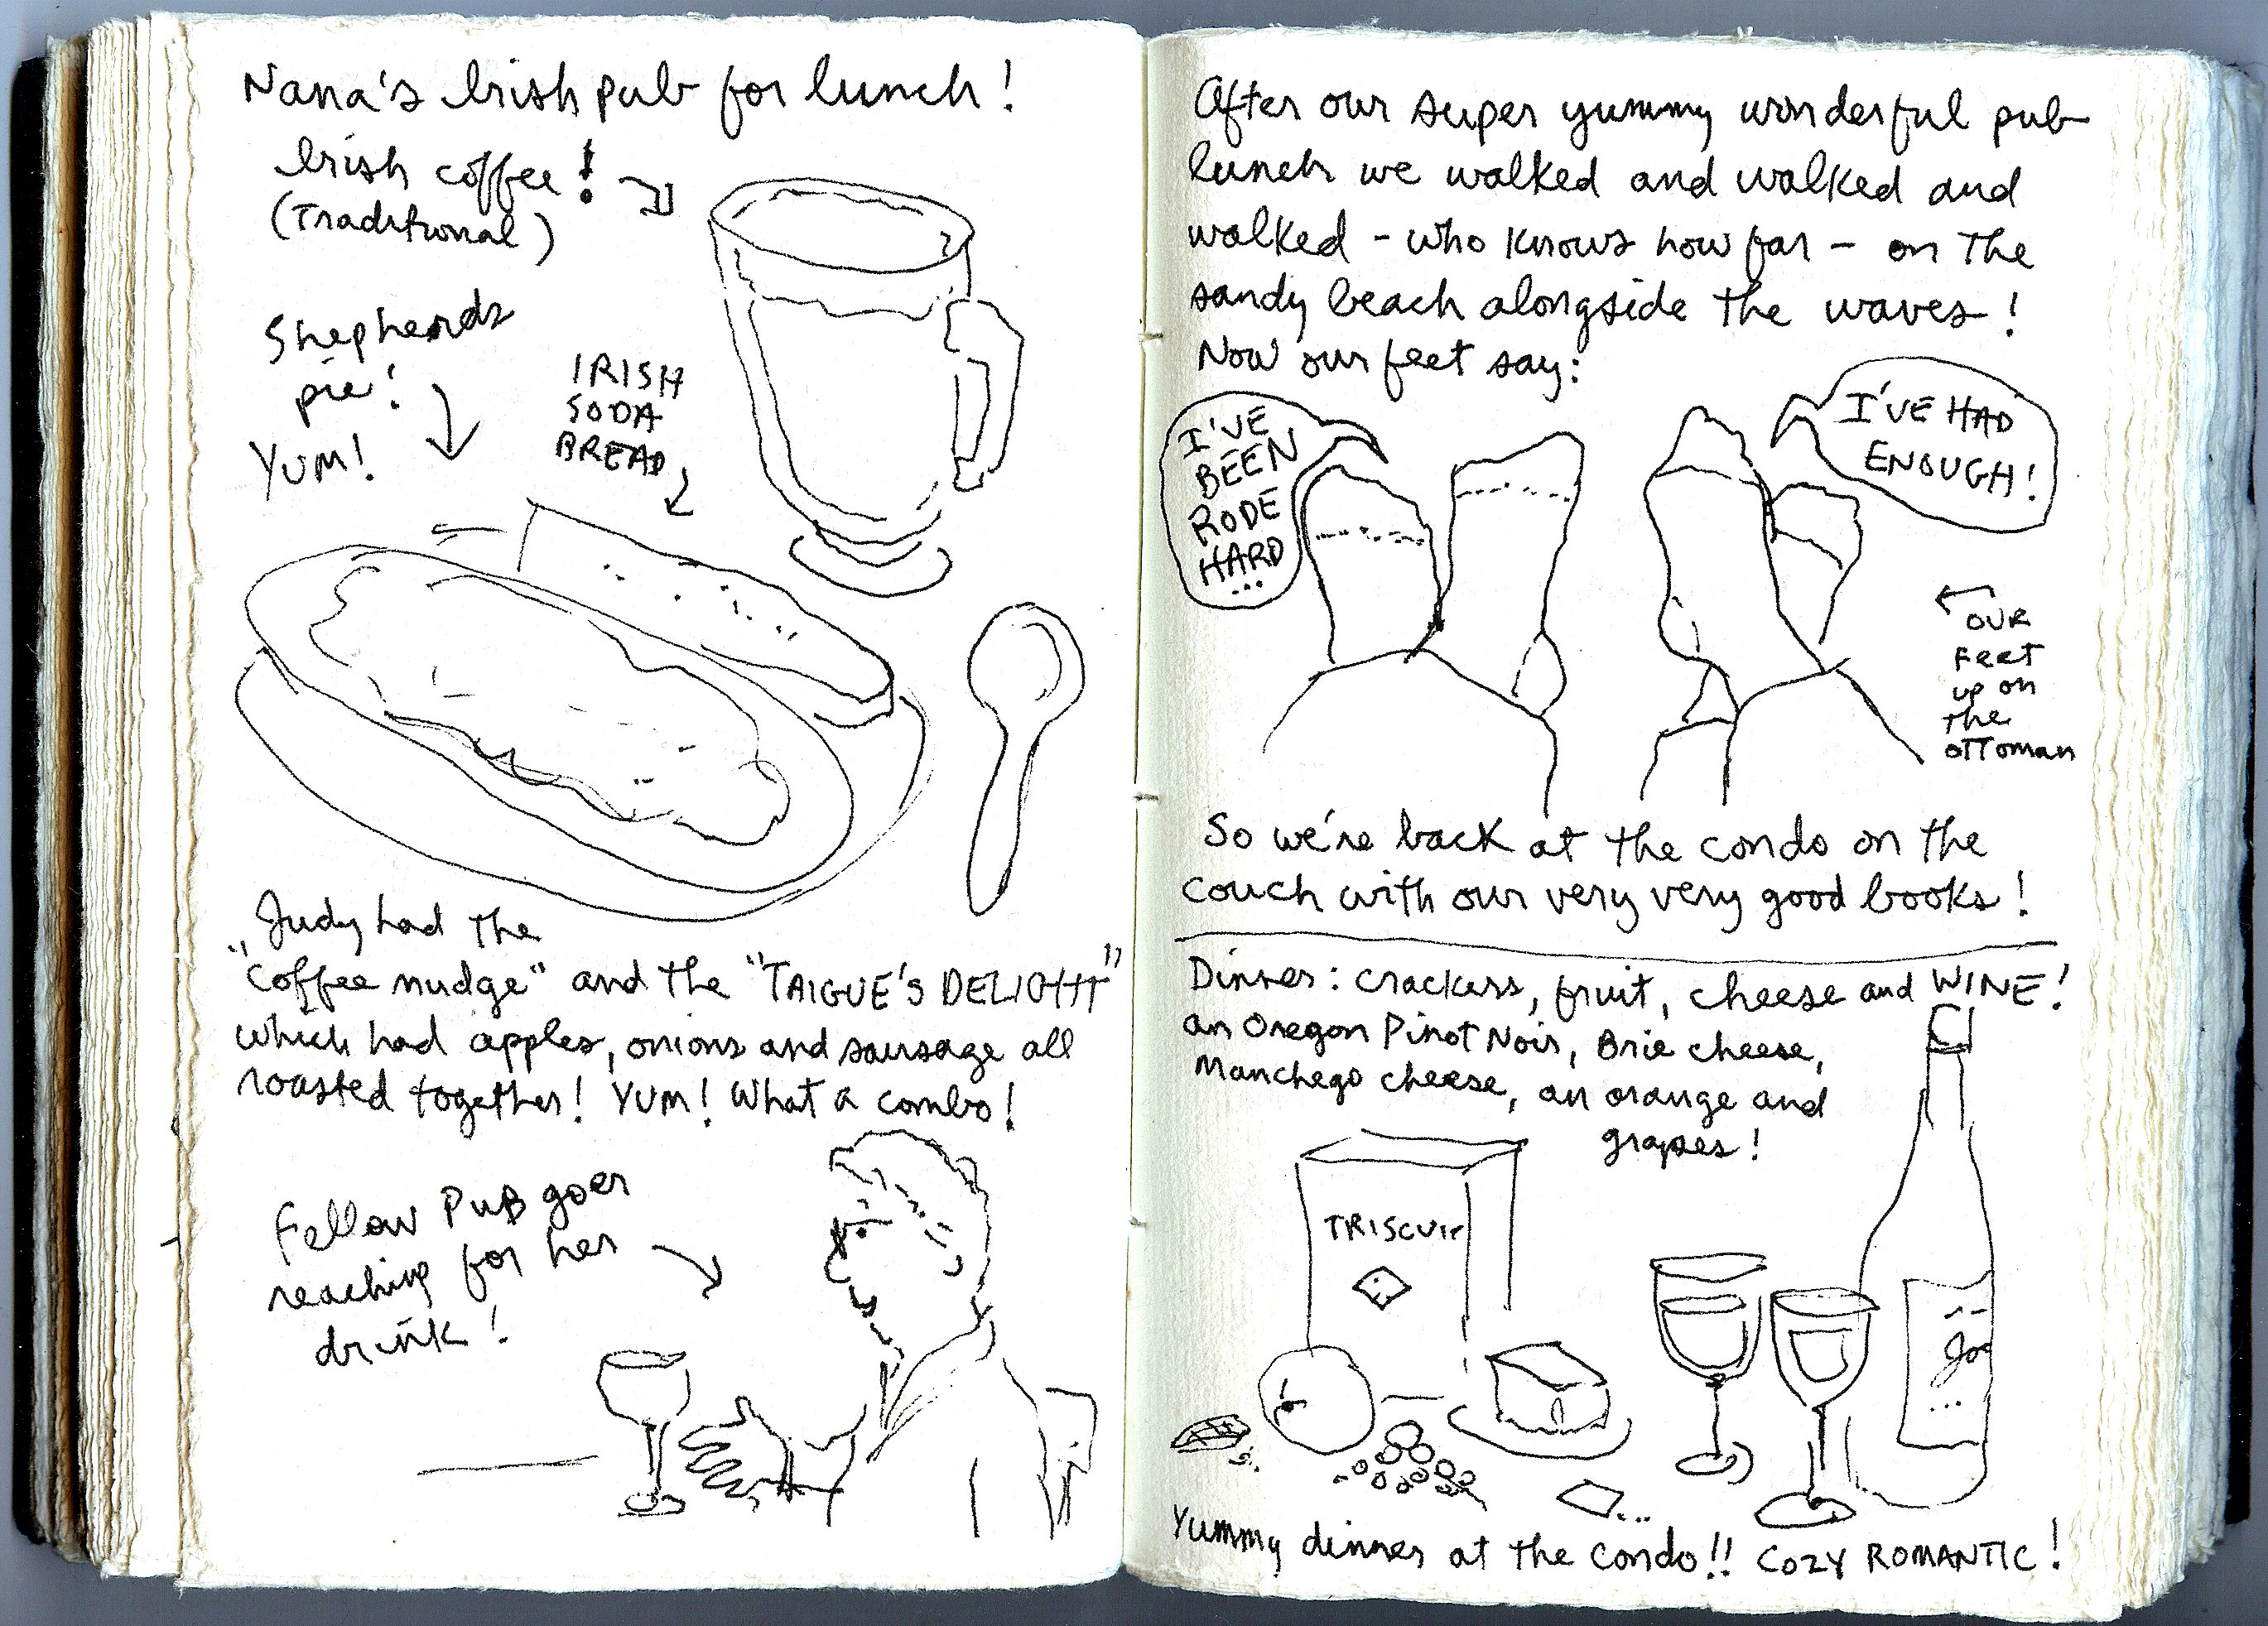 Nana's Irish pub for lunch!
Irish coffee!
(Traditional)
Shepherds
pie!
YUM!
IRISH
SODA
BREAD
Judy had the
"coffee nudge" and the "TAIGUE'S DELIGHT"
which had apples, onions and sausage all
roasted together! YUM! What a combo!
Fellow PUB goer
reaching for her
drink!
After our super yummy wonderful pub
lunch we walked and walked and
walked - who knows how far - on the
sandy beach alongside the waves!
Now our feet say:
I'VE
BEEN
RODE
HARD
...
I'VE HAD
ENOUGH!
OUR
feet
up on
the
ottoman
So we're back at the condo on the
couch with our very very good books!
Dinner: crackers, fruit, cheese and WINE!
an Oregon Pinot Noir, Brie cheese,
Manchego cheese, an orange and
grapes!
TRISCUIT
Jo
...
Yummy dinner at the condo!! COZY ROMANTIC!